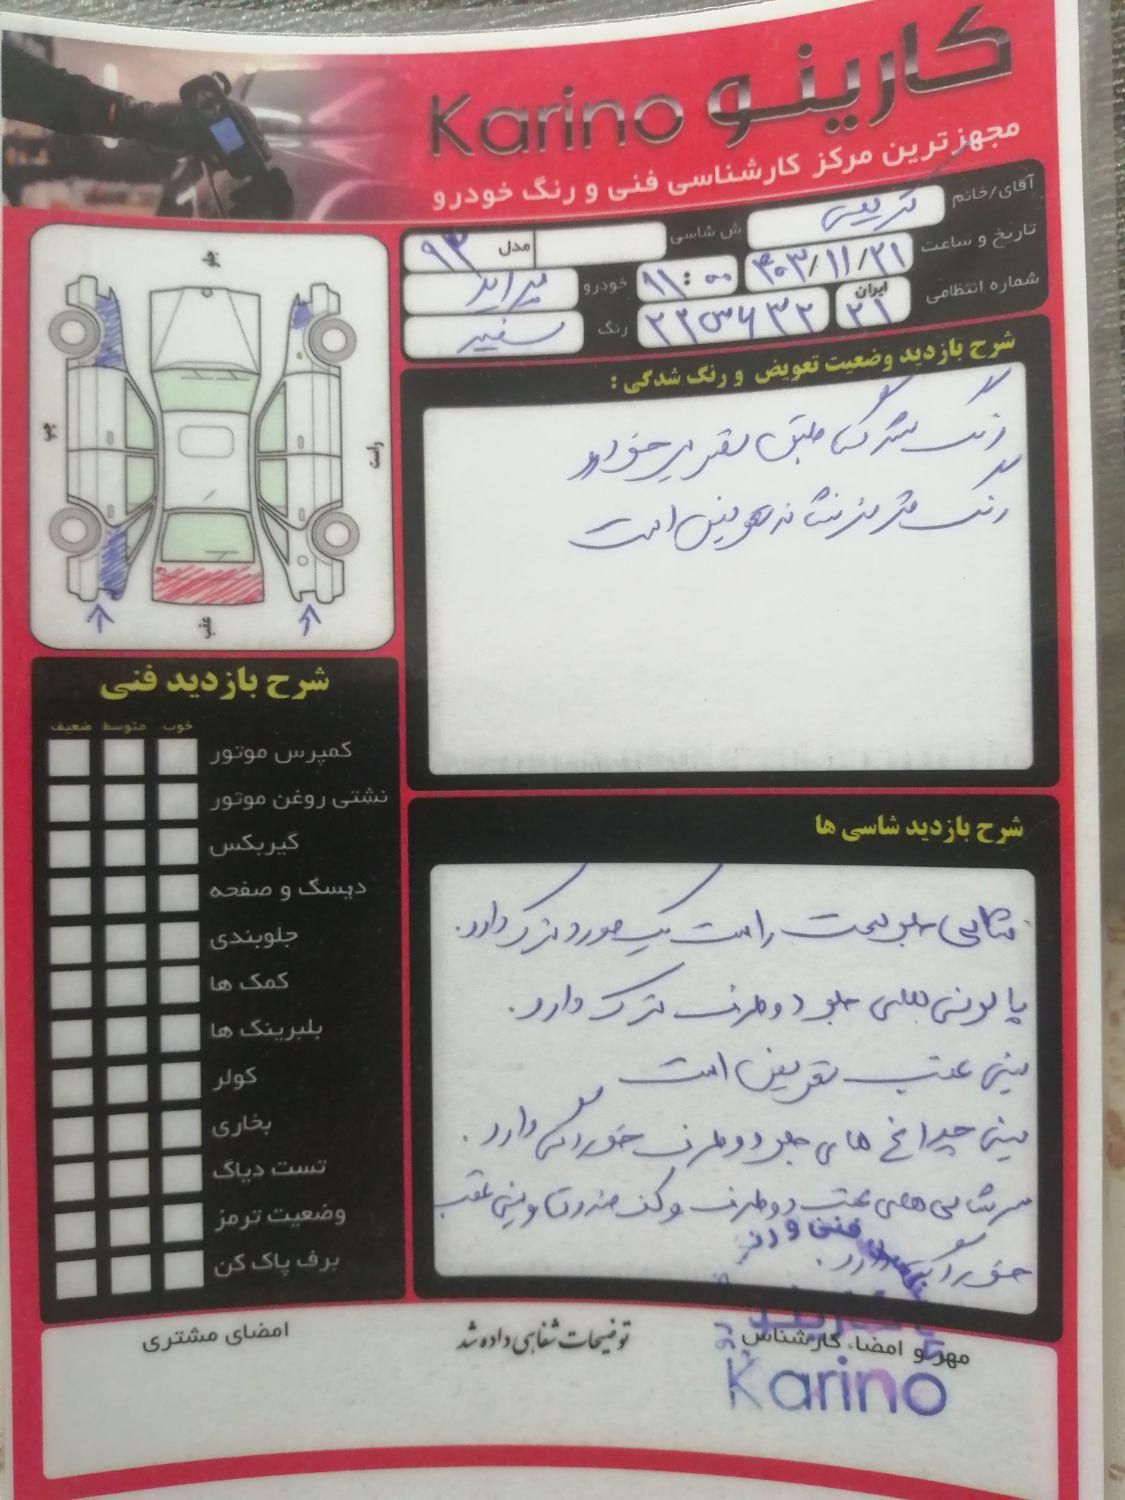 کارینو Karino
مجهزترین مرکز کارشناسی فنی و رنگ خودرو
آقای/خانم
ش شاسی
مدل ۹۳
تاریخ و ساعت ۴۰۳/۱۱/۲۱ ۱۱:۰۰
خودرو پراید
شماره انتظامی ایران ۲۱
رنگ سفید
جلو
چپ
راست
عقب
شرح بازدید وضعیت تعویض و رنگ شدگی :
رنگ مشکی طبق تقدیر می‌خورد
رنگ قرمز نشانه تعویض است
شرح بازدید فنی
خوب متوسط ضعیف
کمپرس موتور
نشتی روغن موتور
گیربکس
دیسک و صفحه
جلوبندی
کمک ها
بلبرینگ ها
کولر
بخاری
تست دیاگ
وضعیت ترمز
برف پاک کن
شرح بازدید شاسی ها
شاسی جلو سمت راست یک مورد ترک دارد.
پالونی های جلو دو طرف ترک دارد.
سینی عقب تعویض است
سینی چراغ های جلو دو طرف خوردگی دارد.
سرشاسی های عقب دو طرف و کف صندوق و سینی عقب
خوردگی دارد.
مهر و امضاء کارشناس
توضیحات شفاهی داده شد
امضای مشتری
Karino